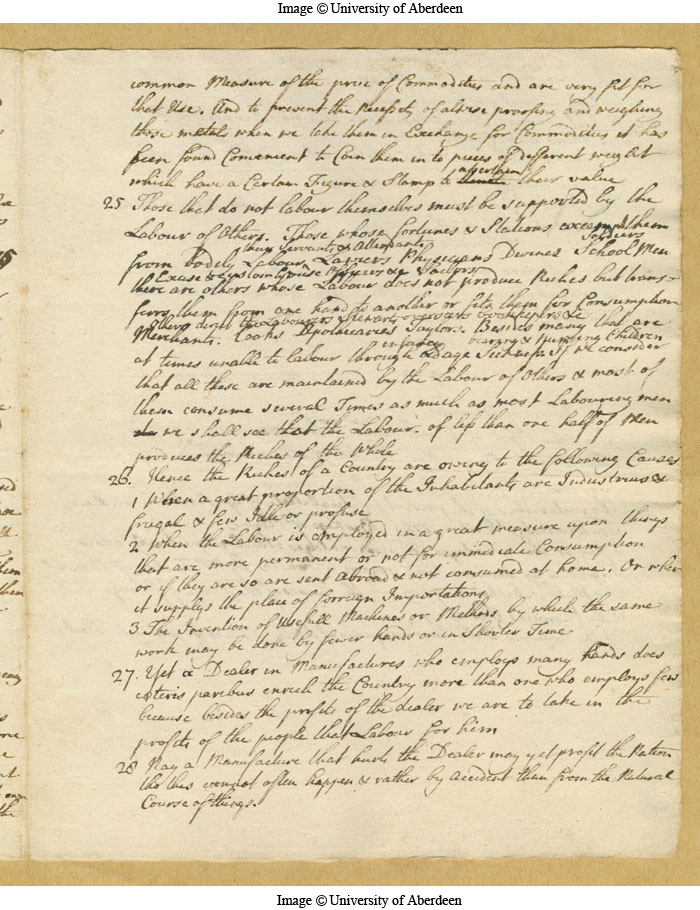 Image © University of Aberdeen
common Measure of the price of Commodities and are very fit for
that Use. And to prevent the necessity of always proofing and weighing
those metals when we take them in Exchange for Commodities it has
been found Convenient to Coin them in to pieces of different weight
which have a Certain Figure & Stamp to ascertain their value
25 Those that do not labour themselves must be supported by the
Labour of Others. Those whose fortunes & Stations exempt them
their Servants & Attendants Soldiers
from bodily Labour Lawiers Physicians Divines School Men
Excise & Customhouse Officers & Factors
there are others whose Labour does not produce Riches but trans-
ferrs them from one hand to another or fits them for Consumption
Others direct the Labourers Stewarts overseers bookkeepers &c
Merchants. Cooks Apothecaries Taylors. Besides many that are
infancy bearing & Nursing Children
at times unable to labour through Old age Sickness If we consider
that all these are maintained by the Labour of Others & most of
them consume several Times as much as most Labouring men
we shall see that the Labour of less than one half of Men
produces the Riches of the Whole
26. Hence the Riches of a Country are owing to the following Causes
1 When a great proportion of the Inhabitants are Industrius &
frugal & few Idle or profuse
2 When the Labour is employed in a great measure upon things
that are more permanent or not for immediate Consumption
or if they are so are sent abroad & not consumed at home. Or when
it supplys the place of forreign Importations
3 The Invention of Usefull Machines or Methods by which the same
work may be done by fewer hands or in Shorter Time
27. Yet a Dealer in Manufactures who employs many hands does
ceteris paribus enrich the Country more than one who employs few
because besides the profits of the dealer we are to take in the
profits of the people that Labour for him
28 Nay a Manufacture that hurts the Dealer may yet profit the Nation
tho this cannot often happen & rather by accident than from the Natural
Course of things.
Image © University of Aberdeen